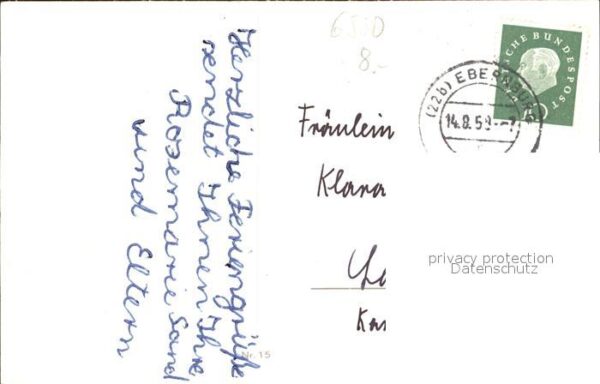 Herzliche Feriengrüße
sendet Ihnen Ihre
Rosemarie Sand
und Eltern
6500
8.-
Fräulein
Klara
Nr. 15
DEUTSCHE BUNDESPOST
(22b) EBERNBURG
14.8.59.-7
privacy protection
Datenschutz